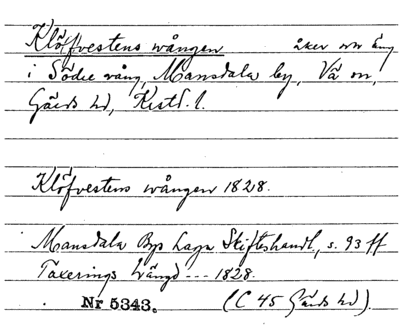 Klöfvestens wången åker och äng
i Södre vång, Mansdala by, Vä sn,
Gärds hd, Kristl. l.
Klöfvestens wången 1828.
Mansdala Bys Laga Skifteshandl., s. 93 ff
Taxerings Längd --- 1828.
Nr 5343. (C 45 Gärds hd).